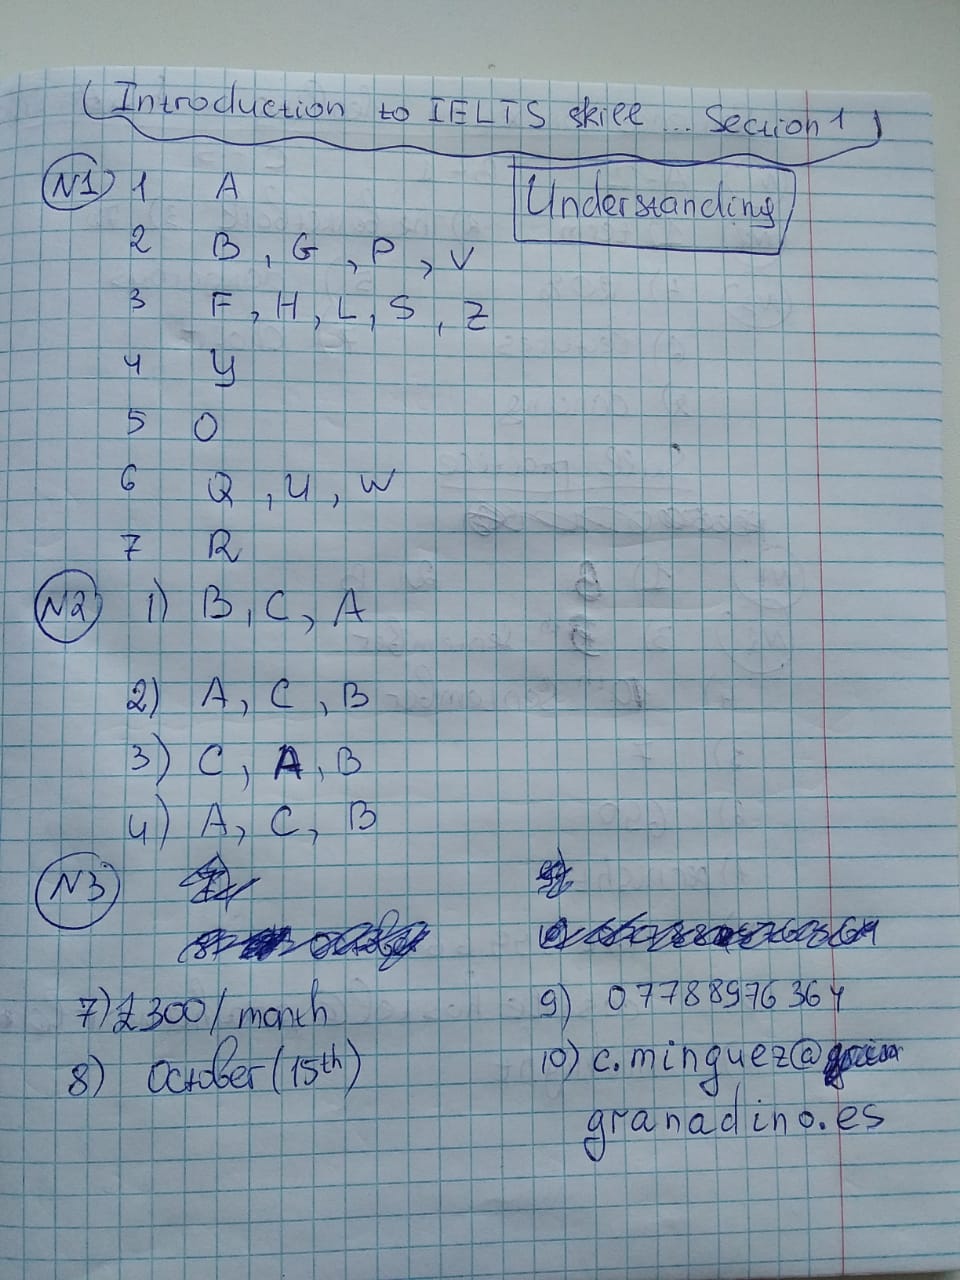 (Introduction to IELTS skill ... Section 1)
Understanding
N1) 1 A
2 B, G, P, V
3 F, H, L, S, Z
4 y
5 O
6 Q, U, W
7 R
N2 1) B, C, A
2) A, C, B
3) C, A, B
4) A, C, B
N3
7) £300/month
8) October (15th)
9) 07788976364
10) c.minguez@
granadino.es